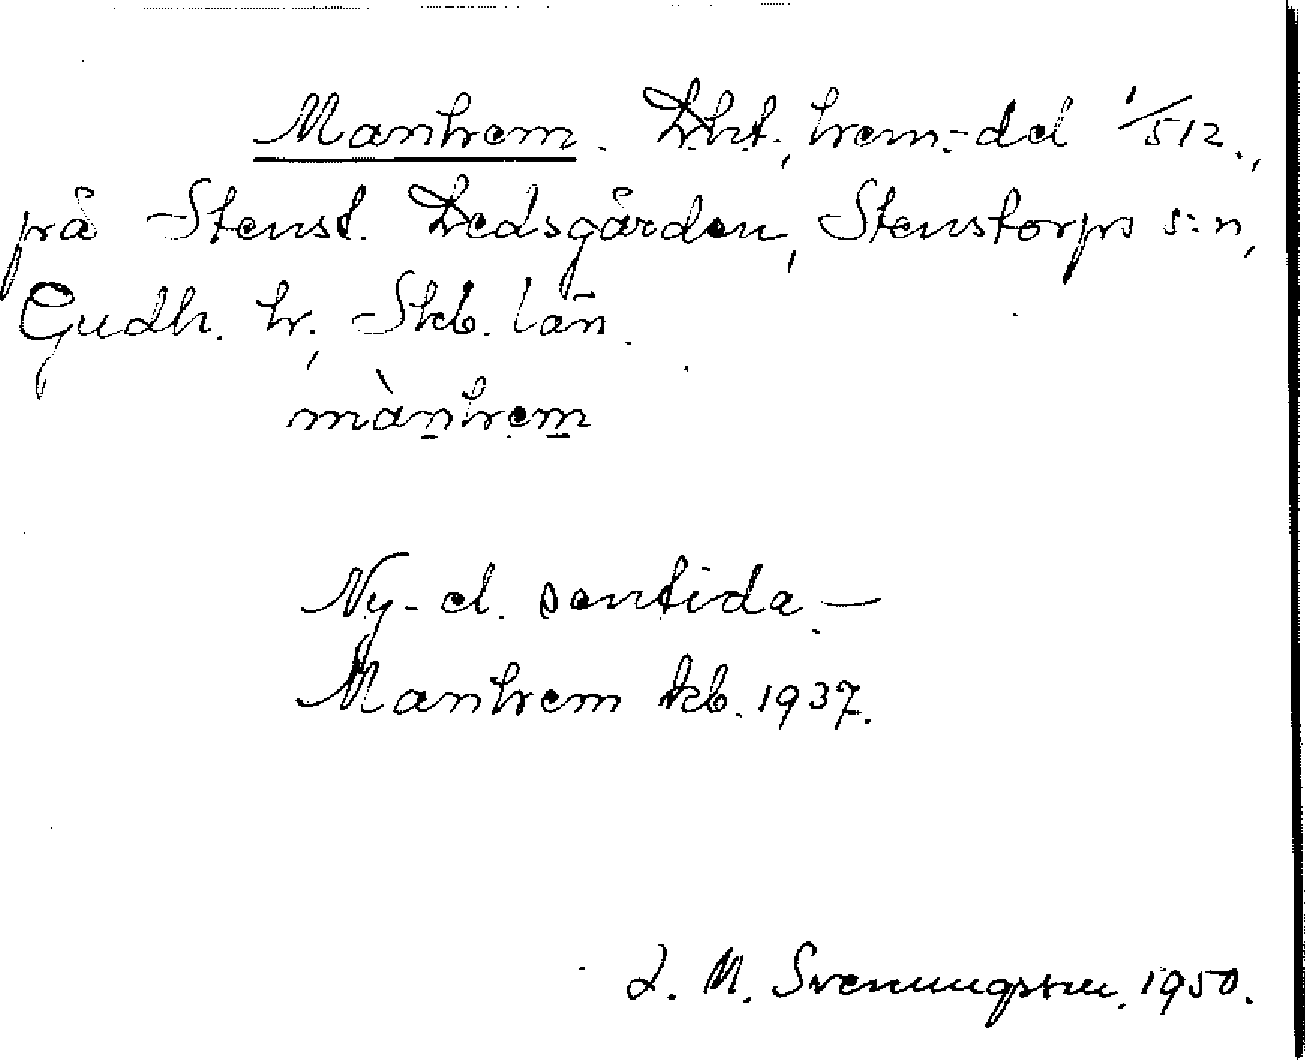 Manhem. Lht., hem.-del 1/512.,
på Stenst. Ledsgården, Stenstorps s:n,
Gudh. hr, Skb. län.
mànhem
Ny- el. samtida. —
Manhem kb. 1937.
J. M. Svenungsson. 1950.